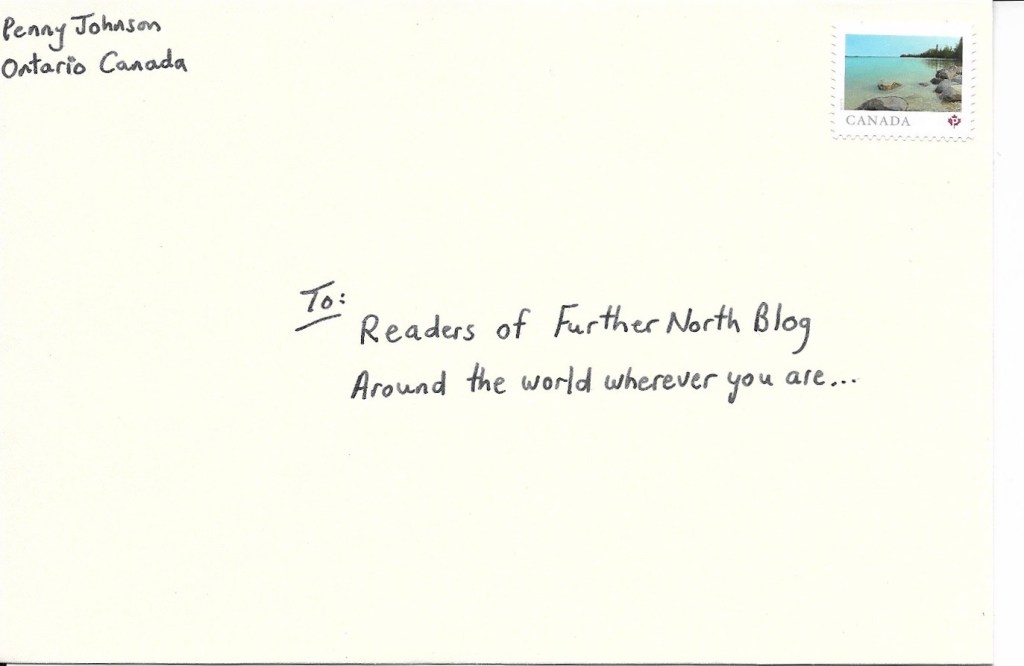 Penny Johnson
Ontario Canada
CANADA
P
To:
Readers of Further North Blog
Around the world wherever you are...